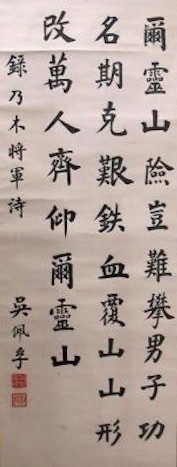 爾靈山險豈難攀男子功
名期克艱鉄血覆山山形
改萬人齊仰爾靈山
錄乃木將軍詩
吳佩孚